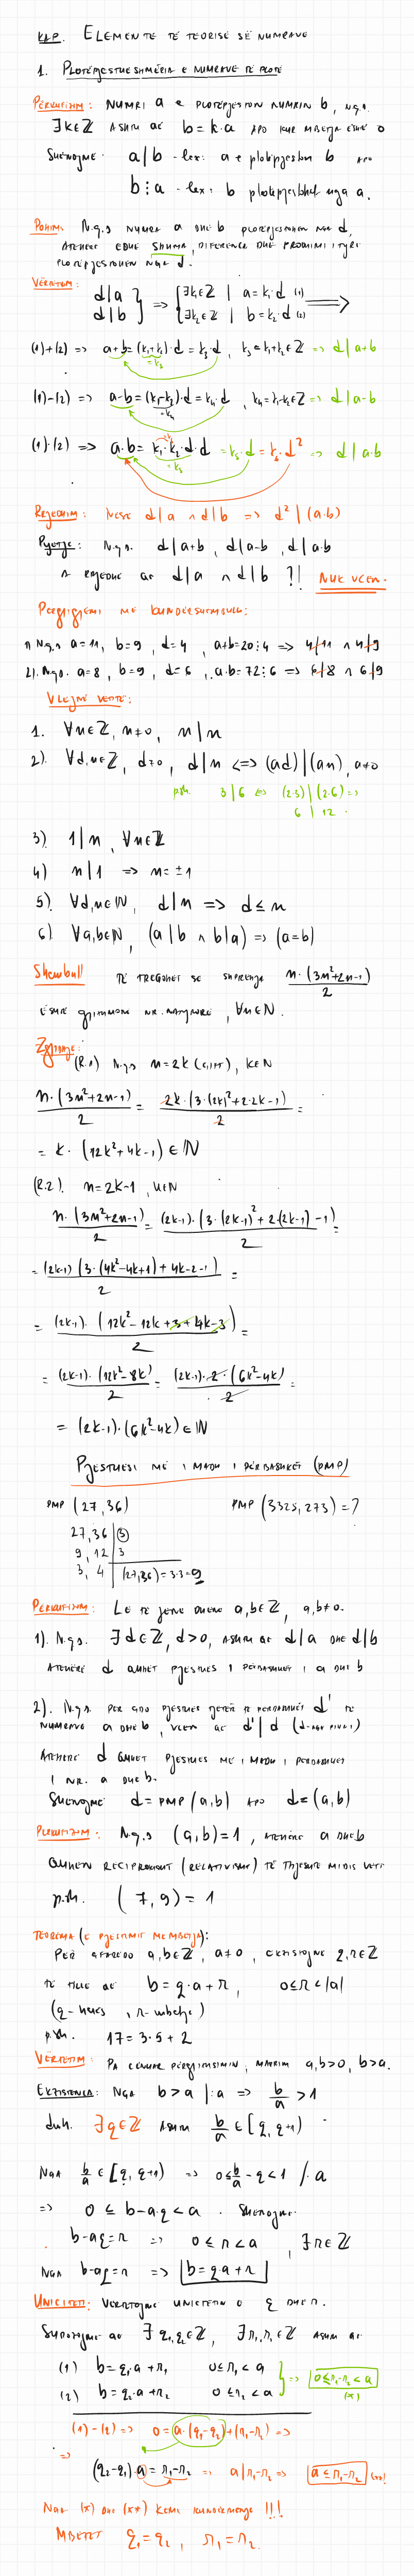 KAP. ELEMENTE TË TEORISË SË NUMRAVE
1. PLOTËPJESTUESHMËRIA E NUMRAVE TË PLOTË
PËRKUFIZIM: NUMRI a E PLOTËPJESTON NUMRIN b, N.q.s.
∃k∈Z ASHTU QË b = k·a APO KUR MBETJA ËSHTË 0
SHËNOJMË: a|b - lex: a e plotëpjeston b APO
b⋮a - lex: b plotëpjestohet nga a.
POHIM: N.q.s NUMRAT a DHE b PLOTËPJESTOHEN NGA d,
ATËHERË EDHE SHUMA, DIFERENCA DHE PRODHIMI I TYRE
PLOTËPJESTOHEN NGA d.
VËRTETIM: d|a } => { ∃k₁∈Z | a=k₁·d (1)
d|b } { ∃k₂∈Z | b=k₂·d (2) =>
(1)+(2) => a+b=(k₁+k₂)·d=k₃·d, k₃=k₁+k₂∈Z => d|a+b
=k₃
(1)-(2) => a-b=(k₁-k₂)·d=k₄·d, k₄=k₁-k₂∈Z => d|a-b
=k₄
(1)·(2) => a·b= k₁·k₂·d·d =k₅·d=k₆·d² => d|a·b
RRJEDHIM: NËSE d|a ∧ d|b => d²|(a·b)
Pyetje: N.q.s. d|a+b, d|a-b, d|a·b
A RRJEDHË QË d|a ∧ d|b ?! NUK VLEN.
PËRGJIGJEMI ME KUNDËRSHEMBULL:
1) N.q.s a=11, b=9, d=4, a+b=20⋮4 => 4∤11 ∧ 4∤9
2). N.q.s. a=8, b=9, d=6, a·b=72⋮6 => 6∤8 ∧ 6∤9
VLEJNË VETITË:
1. ∀n∈Z, n≠0, n|n
2). ∀d,n∈Z, d≠0, d|n <=> (ad)|(an), a≠0
p.sh. 3|6 <=> (2·3)|(2·6) =>
6 | 12
3) 1|n, ∀n∈Z
4) n|1 => n=±1
5) ∀d,n∈N, d|n => d≤n
6) ∀a,b∈N, (a|b ∧ b|a) => (a=b)
Shembull TË TREGOHET SE SHPREHJA n·(3n²+2n-1)/2
ËSHTË GJITHMONË NR. NATYRORË, ∀n∈N.
Zgjidhje:
(R.1) N.q.s n=2k (ÇIFT), k∈N
n·(3n²+2n-1)/2 = 2k·(3·(2k)²+2·2k-1)/2 =
= k·(12k²+4k-1) ∈ N
(R.2). n=2k-1, k∈N
n·(3n²+2n-1)/2 = (2k-1)·(3·(2k-1)²+2·(2k-1)-1)/2 =
= (2k-1)(3·(4k²-4k+1)+4k-2-1)/2 =
= (2k-1)·(12k²-12k+3+4k-3)/2 =
= (2k-1)·(12k²-8k)/2 = (2k-1)·2·(6k²-4k)/2 =
= (2k-1)·(6k²-4k) ∈ N
PJESTUESI MË I MADH I PËRBASHKËT (PMP)
PMP (27,36) PMP (3325,273)=?
27,36 | 3
9, 12 | 3
3, 4 | (27,36)=3·3=9
PËRKUFIZIM: LE TË JENË DHËNË a,b∈Z, a,b≠0.
1). N.q.s. ∃d∈Z, d>0, ASHTU QË d|a DHE d|b
ATËHERË d QUHET PJESTUES I PËRBASHKËT I a DHE b
2). N.q.s. PËR ÇDO PJESTUES TJETËR TË PËRBASHKËT d' TË
NUMRAVE a DHE b, VLEN QË d'|d
ATËHERË d QUHET PJESTUES MË I MADH I PËRBASHKËT
I NR. a DHE b.
SHËNOJMË d=PMP(a,b) APO d=(a,b)
PËRKUFIZIM: N.q.s (a,b)=1, ATËHERË a DHE b
QUHEN RECIPROKISHT (RELATIVISHT) TË THJESHTË MIDIS VETI
p.sh. (7,9)=1
TEOREMA (E PJESTIMIT ME MBETJE):
PËR ÇFARËDO a,b∈Z, a≠0, EKZISTOJNË q,r∈Z
TË TILLË QË b=q·a+r, 0≤r<|a|
(q-herës, r-mbetje)
p.sh. 17=3·5+2
VËRTETIM: PA CËNUAR PËRGJITHSIMIN, MARRIM a,b>0, b>a.
EKZISTENCA: NGA b>a |:a => b/a >1
duh. ∃q∈Z ASHTU b/a ∈ [q, q+1)
NGA b/a ∈ [q, q+1) => 0≤ b/a -q<1 /·a
=> 0 ≤ b-a·q < a. SHËNOJMË.
b-aq=r => 0≤r<a, ∃r∈Z
NGA b-aq=r => b=q·a+r
UNICITETI: VËRTETOJMË UNICITETIN E q DHE r.
SUPOZOJMË QË ∃q₁,q₂∈Z, ∃r₁,r₂∈Z ASHTU QË
(1) b=q₁·a+r₁ 0≤r₁<a } => 0≤r₁-r₂<a
(2) b=q₂·a+r₂ 0≤r₂<a (*)
(1)-(2) => 0=a·(q₁-q₂)+(r₁-r₂) =>
=> (q₂-q₁)·a=r₁-r₂ => a|r₁-r₂ => a≤r₁-r₂ (**)
NGA (*) DHE (**) KEMI KUNDËRTHËNJE !!!
MBETET q₁=q₂, r₁=r₂.